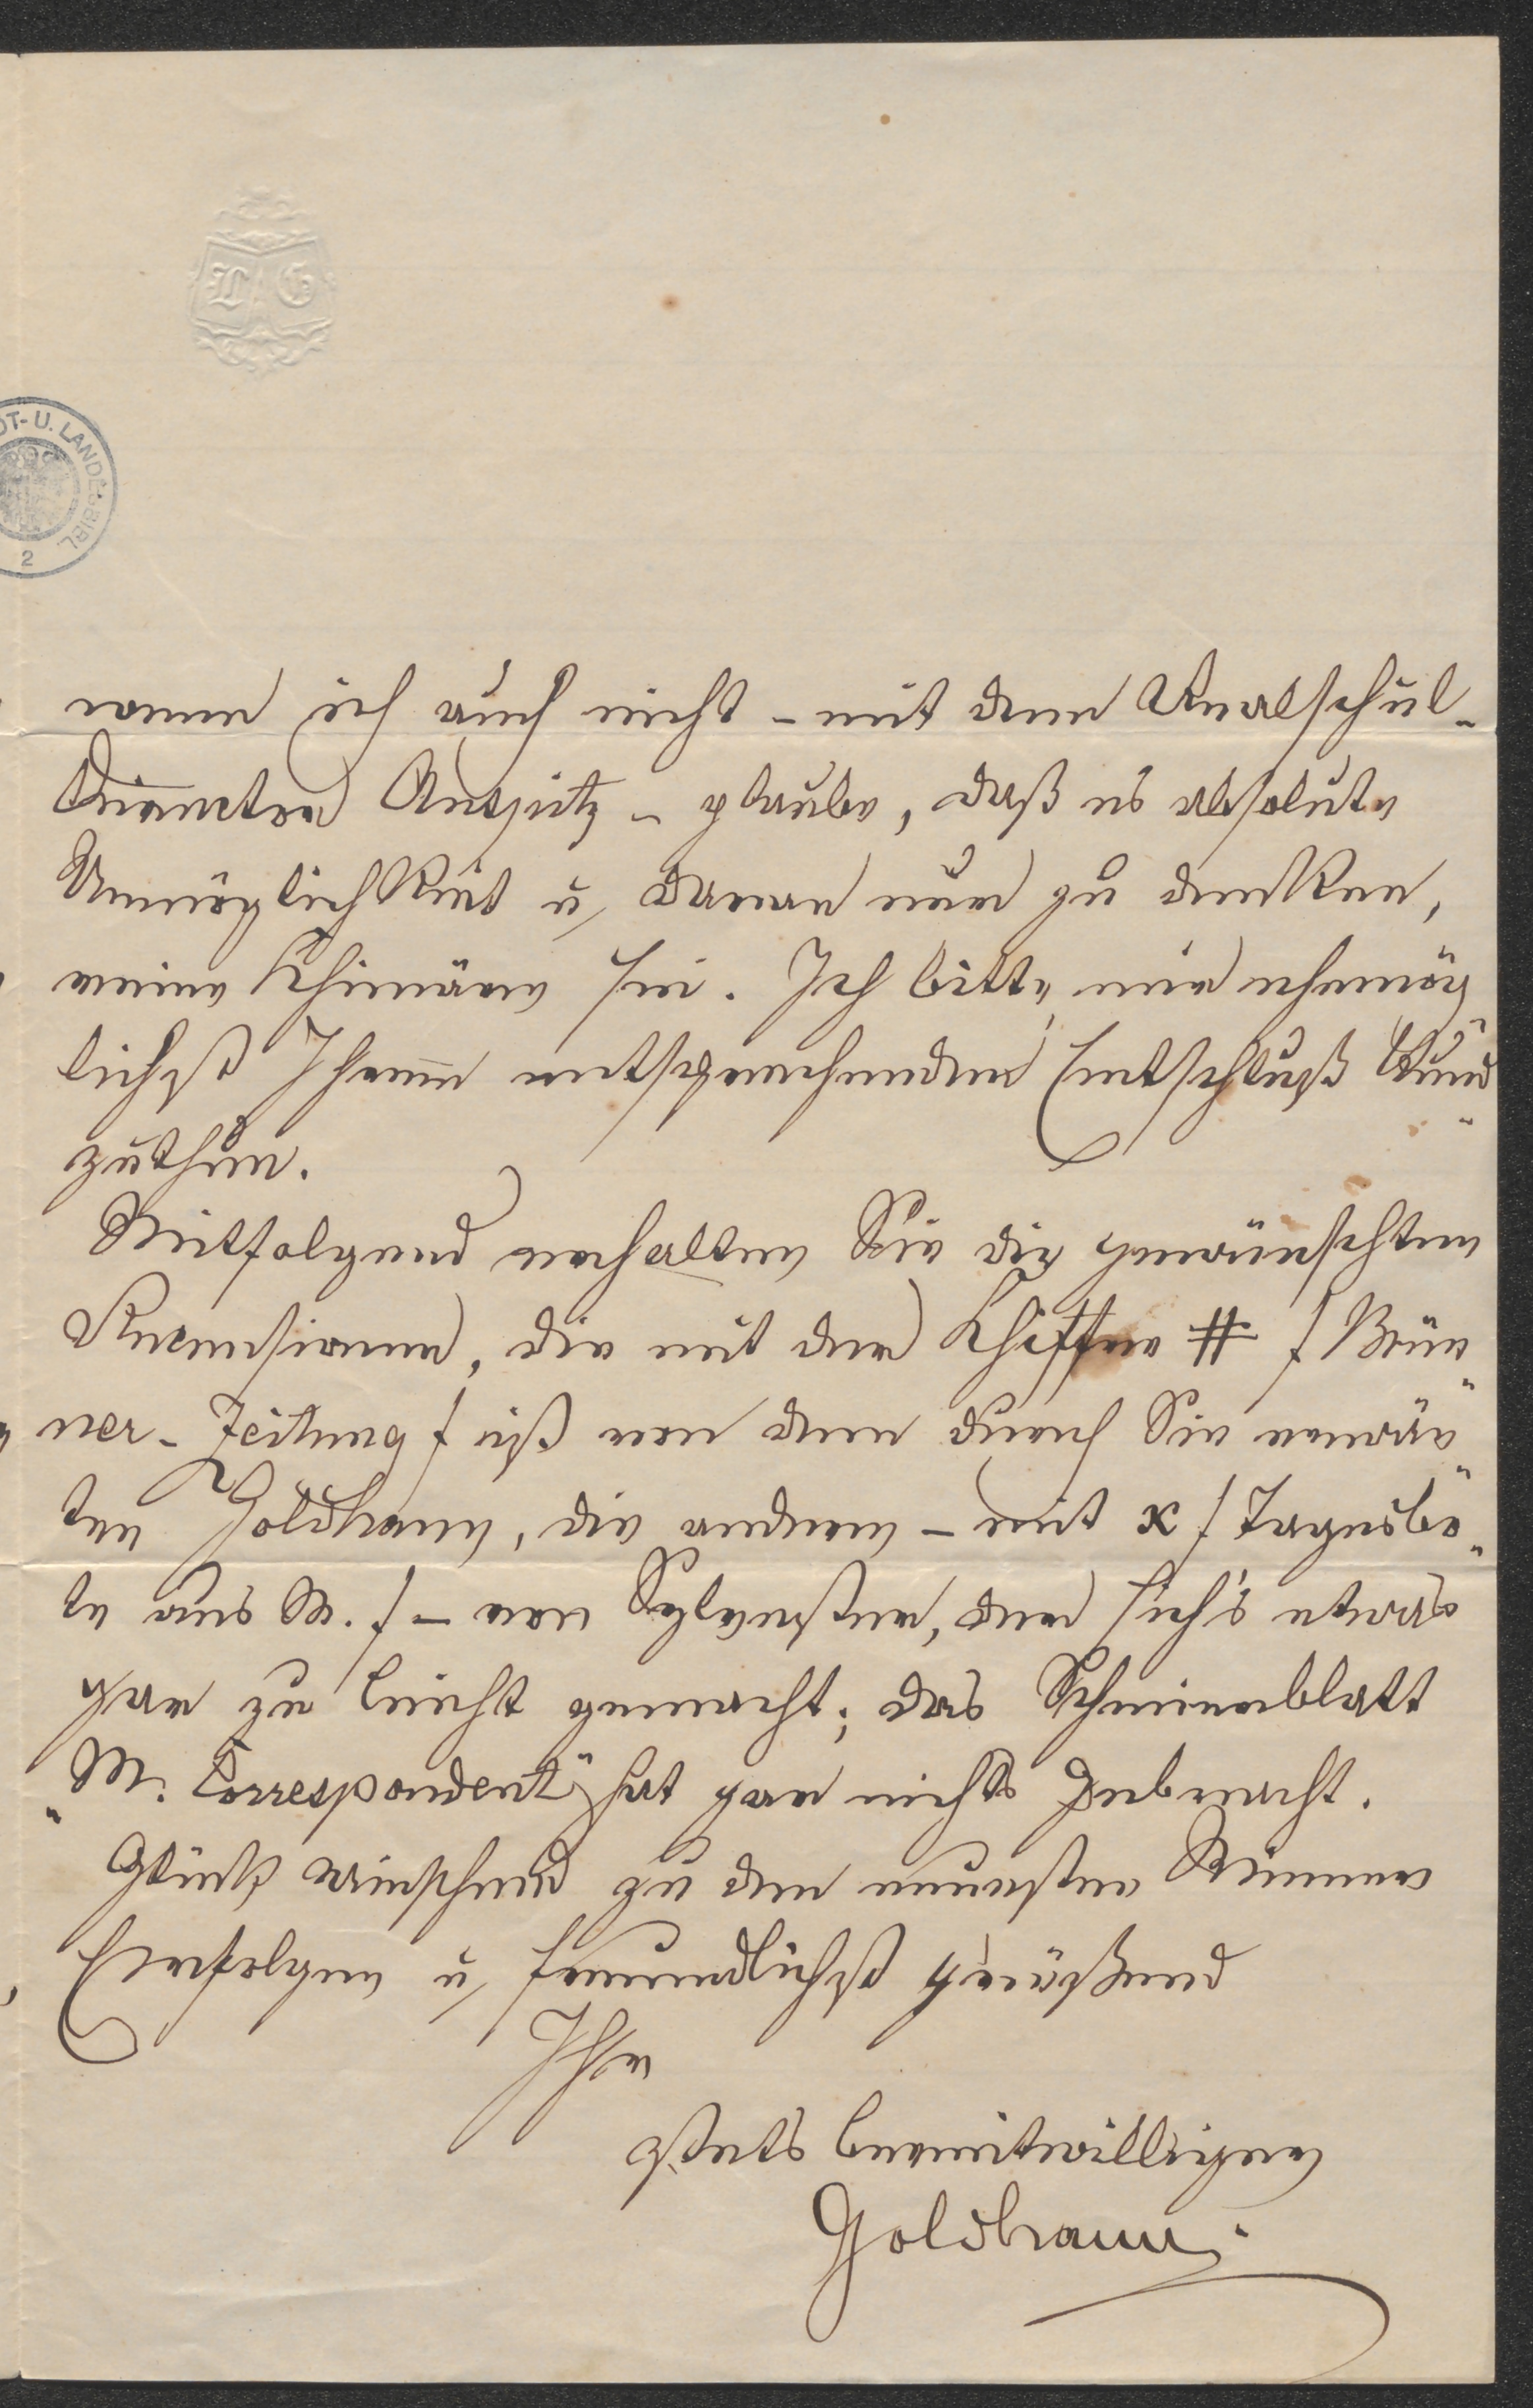 L G
DT- U. LANDESBIBL.
2
wenn ich auch nicht – mit dem Realschul-
Director Auspitz – glaube, daß es absolute
Unmöglichkeit u, daran nur zu denken,
eine Chimäre sei. Ich bitte, mir ehemög
lichst Ihrem entsprechenden Entschluß kund
zuthun.
Mitfolgend erhalten Sie die gewünschten
Recensionen, die mit der Chiffre # / Brün
ner-Zeitung / ist von dem durch Sie
ten Goldhann, die andere – mit x / Tagesbo
te aus M. / – von Sylvester, der sich's etwas
gar zu leicht gemacht; das Schmierblatt
„M. Correspondent“ hat gar nichts gebracht.
Glück wünschend zu den neuesten Wiener
Erfolgen u, freundlichst grüßend
Ihr
stets bereitwilliger
Goldhann.